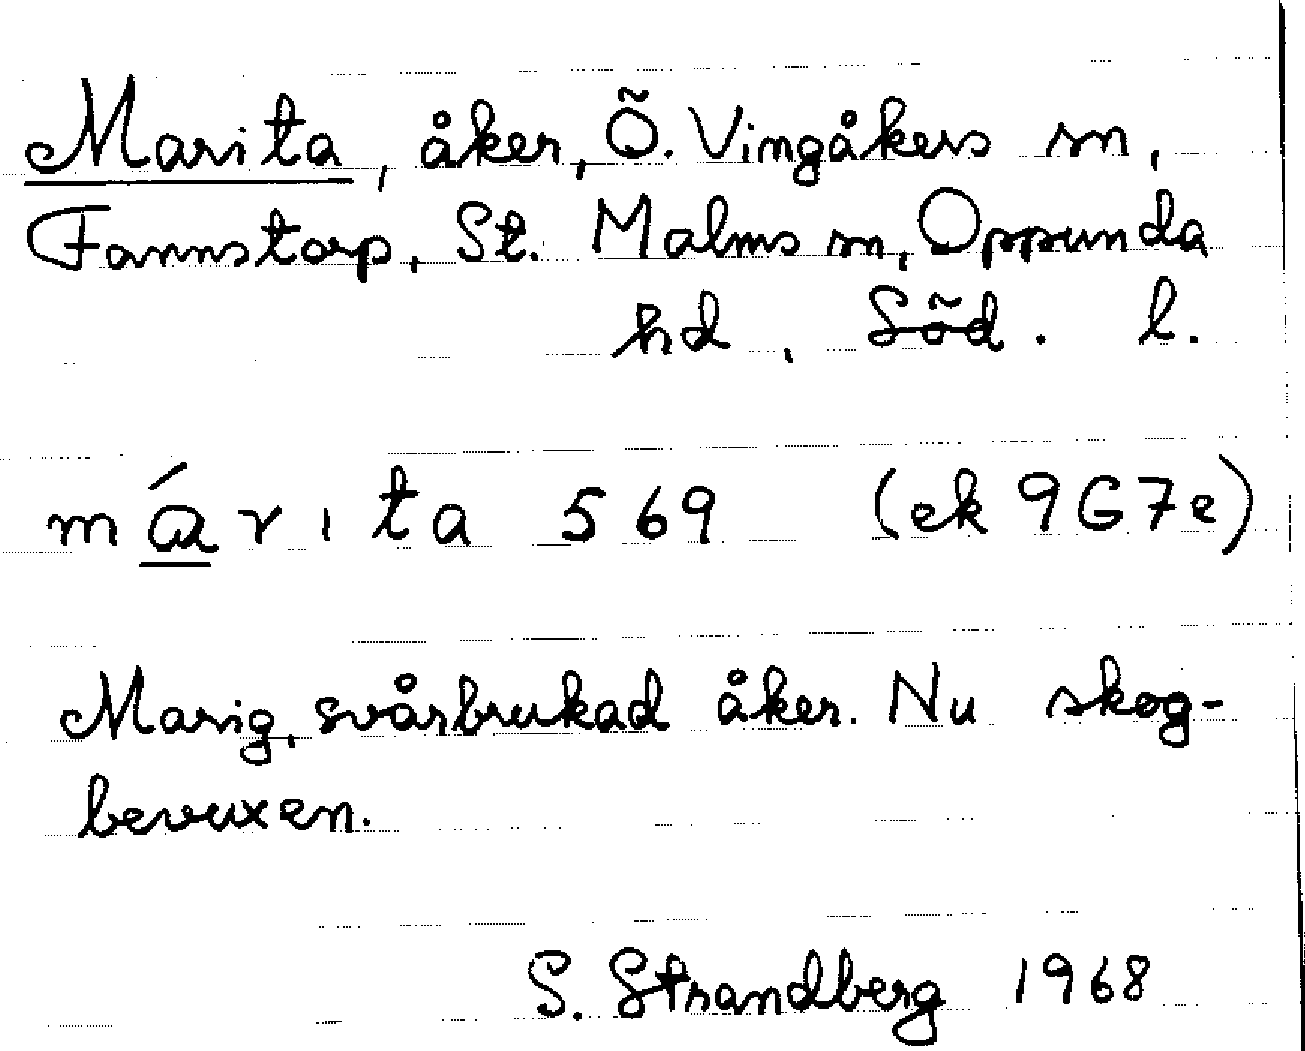 Marita, åker, Ö. Vingåkers sn,
Fannstorp, St. Malms sn, Oppunda
hd, Söd. l.
má̲rıta 569 (ek 9G7e)
Marig, svårbrukad åker. Nu skog-
bevuxen.
S. Strandberg 1968